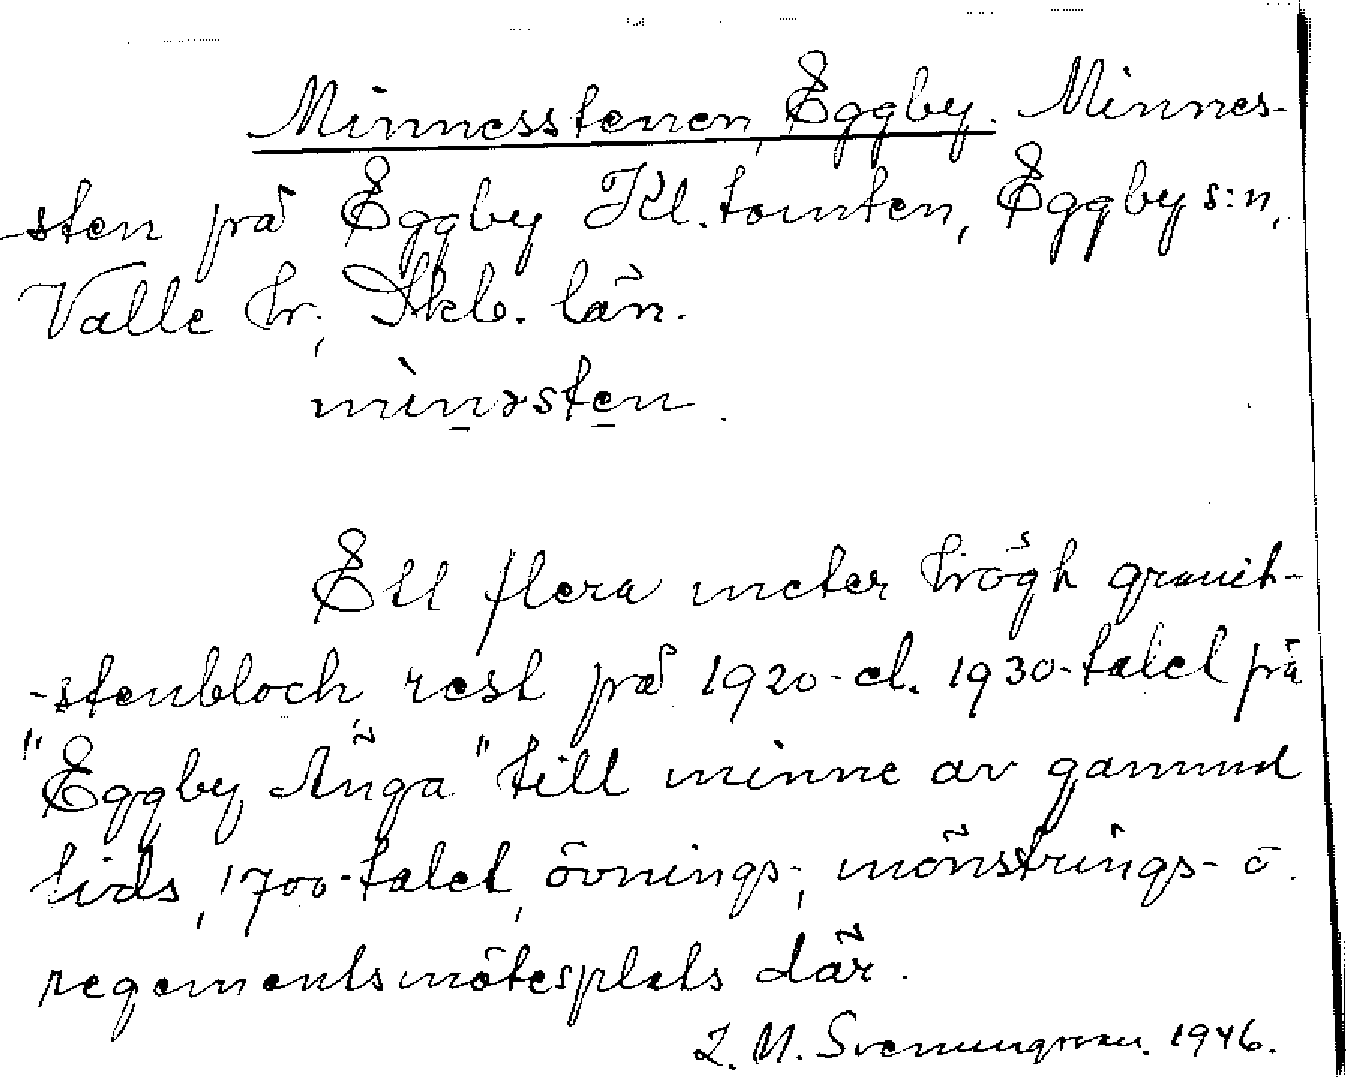 Minnesstenen, Eggby. Minnes-
sten på Eggby Kl. tomten, Eggby s:n,
Valle hr, Skb. län.
mìnəsten.
Ett flera meter högt granit-
-stenblock, rest på 1920- el. 1930-talet på
"Eggby Änga" till minne av gammal
tids, 1700-talet, övnings-, mönstrings- o.
regementsmötesplats där.
1946.